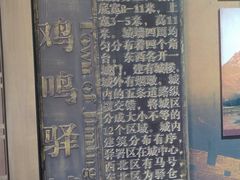 鸡鸣驿
Town of Jiming
底宽8-11米,上
宽3-5米,高11
米。城墙四面均
匀分布着四个角
台。东西各开一
城门,建有城楼
城内五条道路纵
横交错,将城区
分成大小不等的
12个区域。城内
建筑分布有序,
驿署区在城中心
西北区有马号
东北区为驿仓